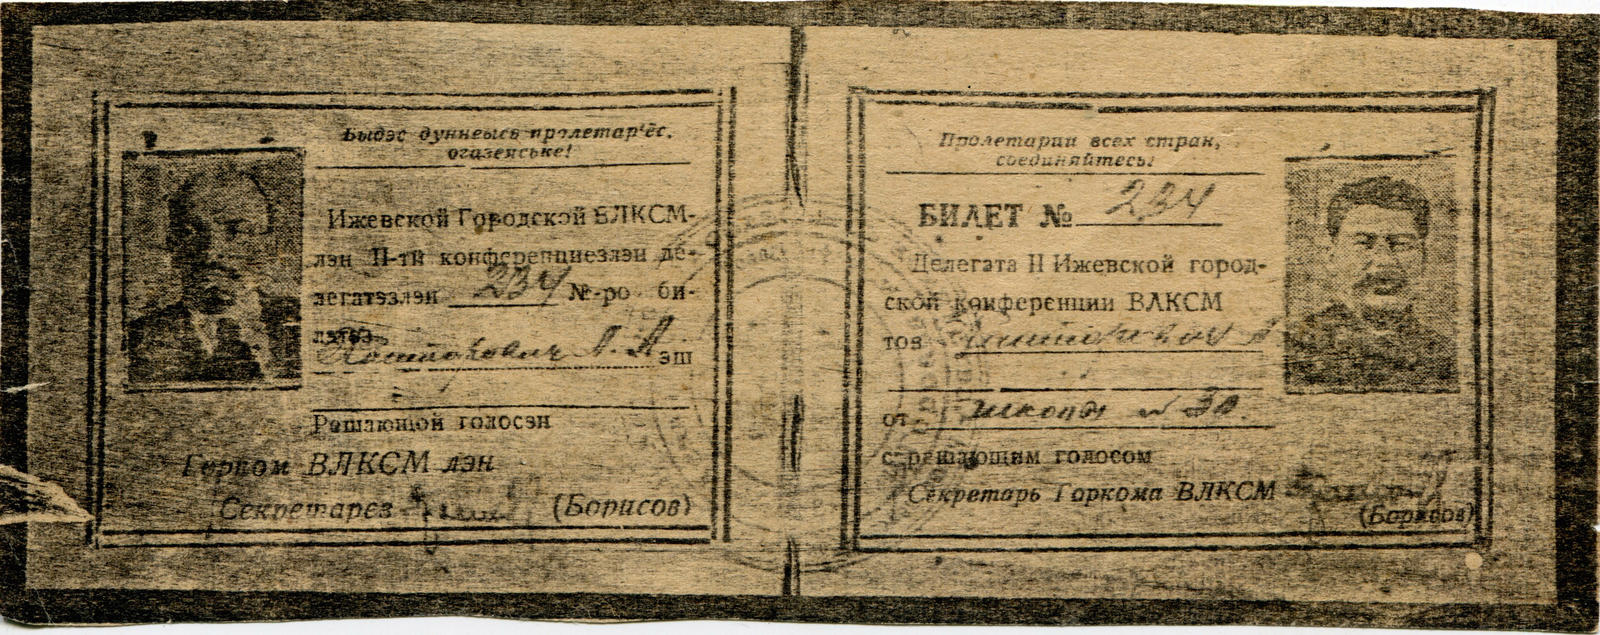 Быдэс дуннеысь пролетар'ёс,
огазеяське!
Ижевской Городской ВЛКСМ-
лэн II-тӥ конференциезлэн де-
легатэзлэн 234 №-ро би-
летэз
А. А. эш
Решающой голосэн
Горком ВЛКСМ лэн
Секретарез (Борисов)
Пролетарии всех стран,
соединяйтесь!
БИЛЕТ № 234
Делегата II Ижевской город-
ской конференции ВЛКСМ
тов
от школы № 30.
с решающим голосом
Секретарь Горкома ВЛКСМ
(Борисов)